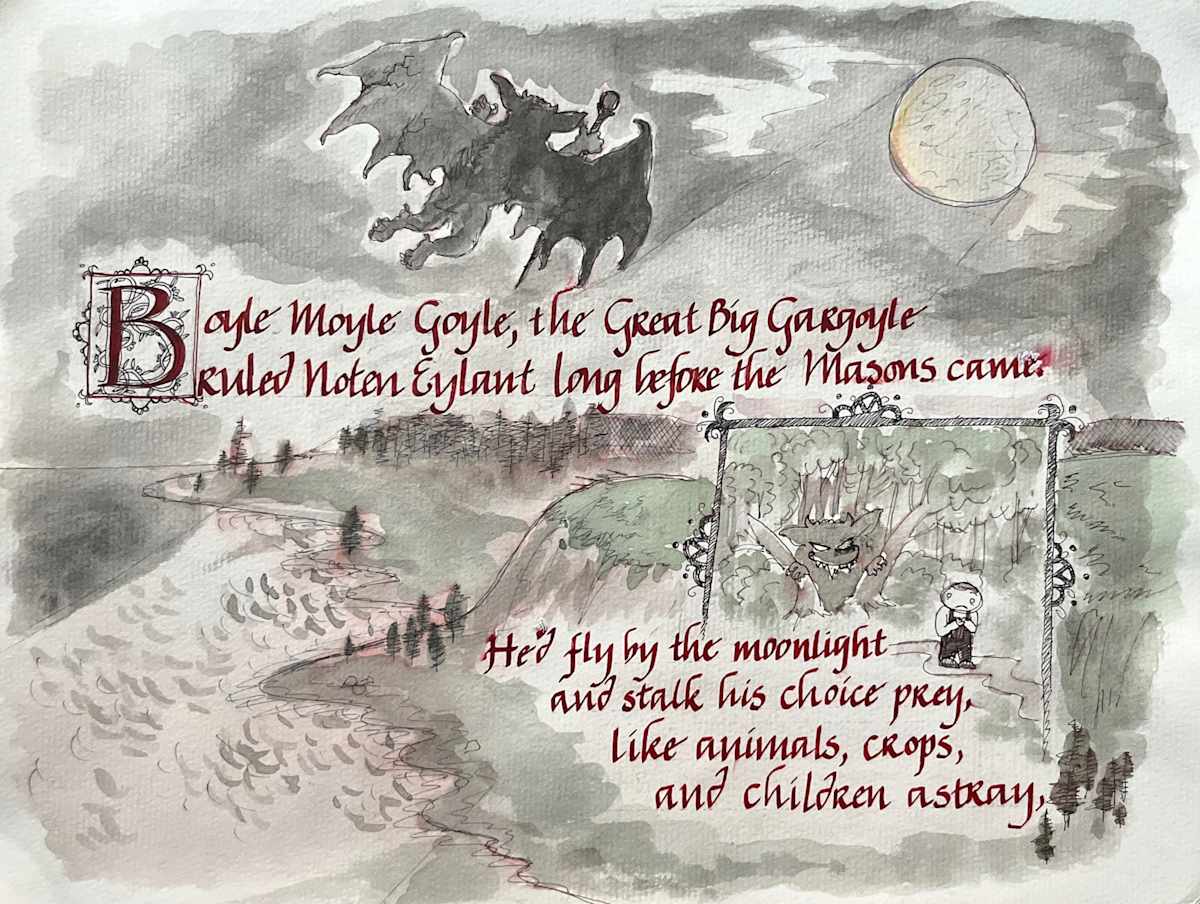 Boyle Moyle Goyle, the Great Big Gargoyle
ruled Noten Eylant long before the Masons came.
He'd fly by the moonlight
and stalk his choice prey,
like animals, crops,
and children astray,